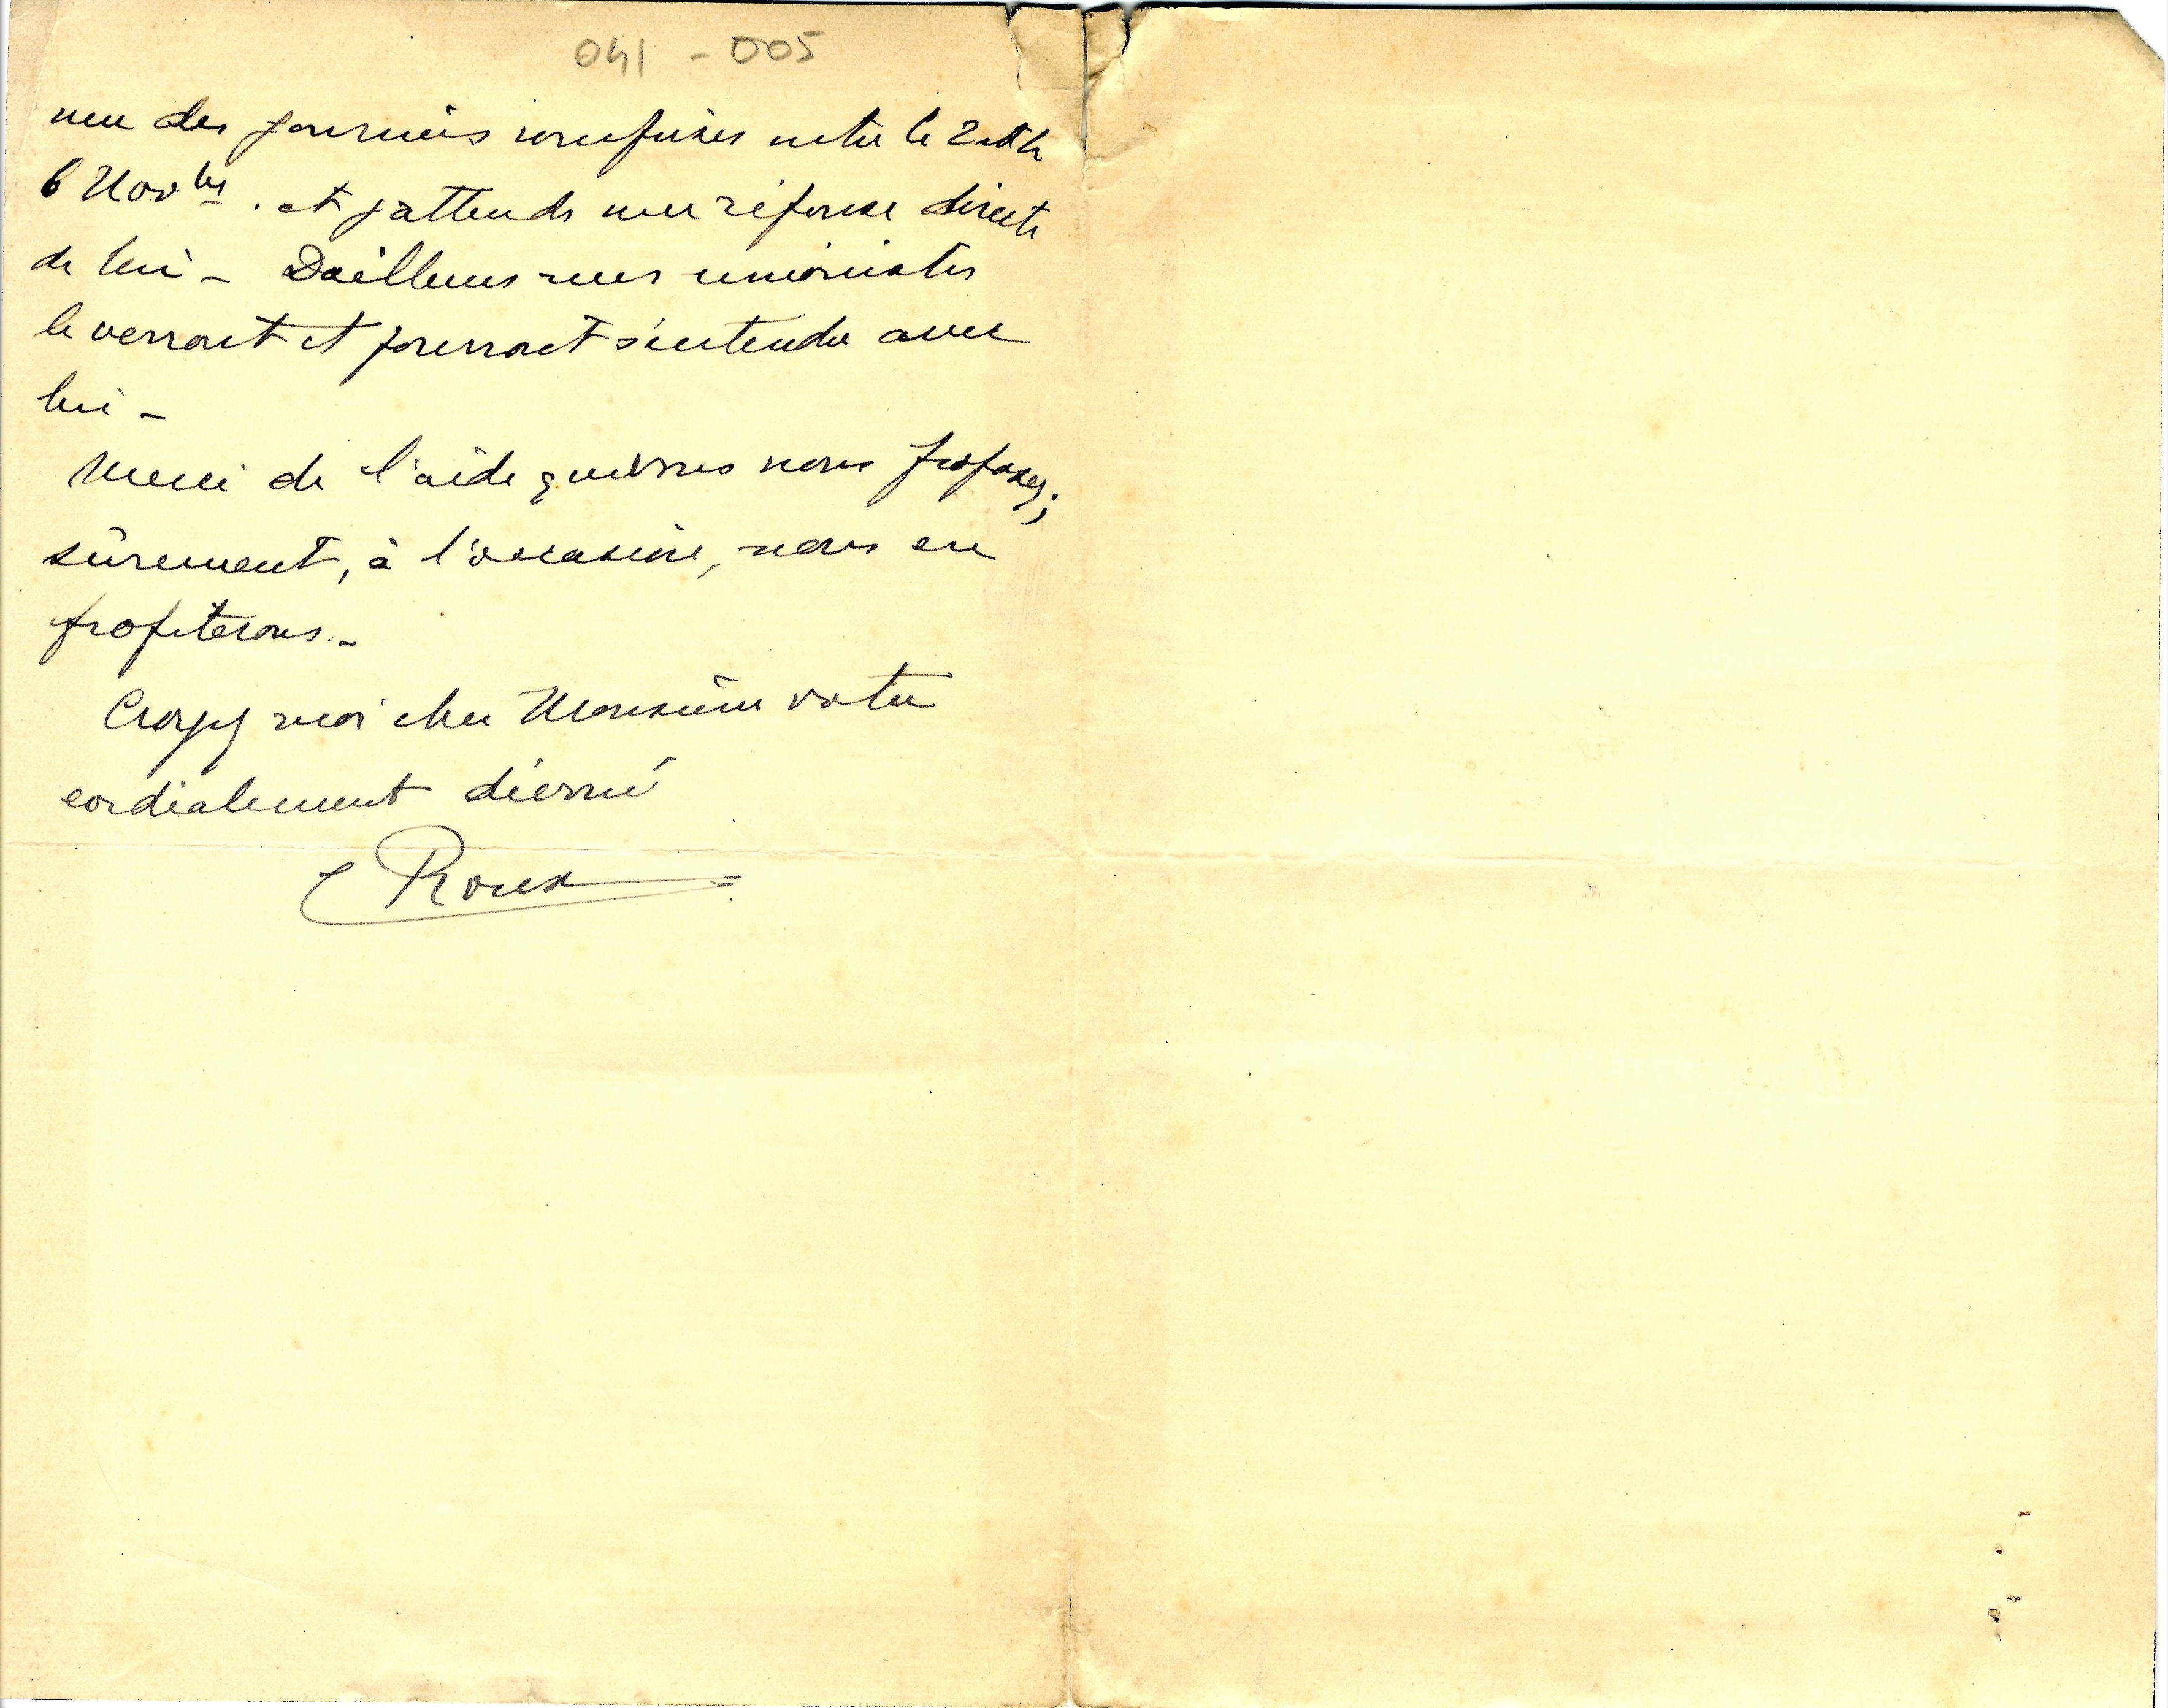 041 - 005
une des journées comprises entre le 2 et le
6 Novbre. et j'attends une réponse directe
de lui - Dailleurs mes unionistes
le verront et pourront s'entendre avec
lui -
Merci de l'aide que vous nous proposez;
sûrement, à l'occasion, nous en
profiterons. -
Croyez moi cher Monsieur votre
cordialement dévoué
Roux